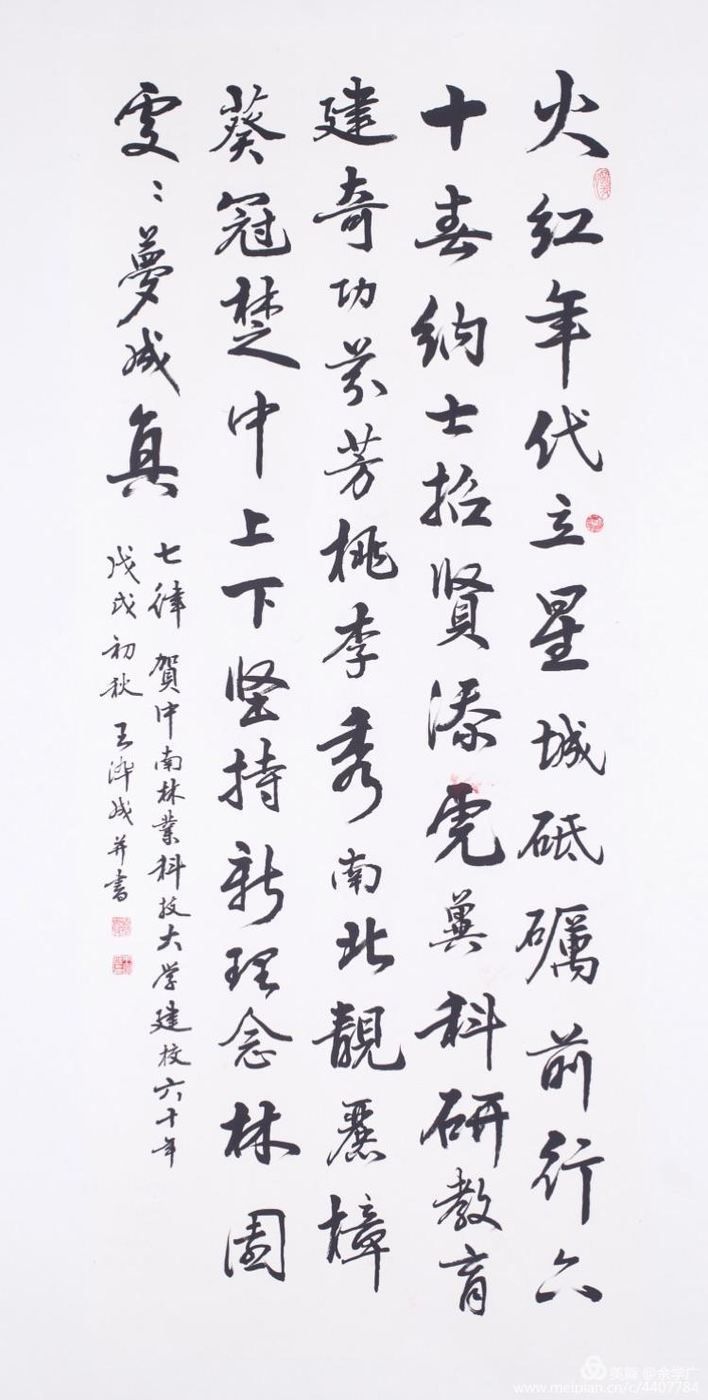 火红年代立星城砥砺前行六
十春纳士招贤添虎翼科研教育
建奇功芬芳桃李秀南北靓丽樟
葵冠楚中上下坚持新理念林园
雯：夢成真
七律 賀中南林業科技大学建校六十年
戊戌初秋 王 成并書
美篇 @余学广
www.meipian.cn/c/4407784